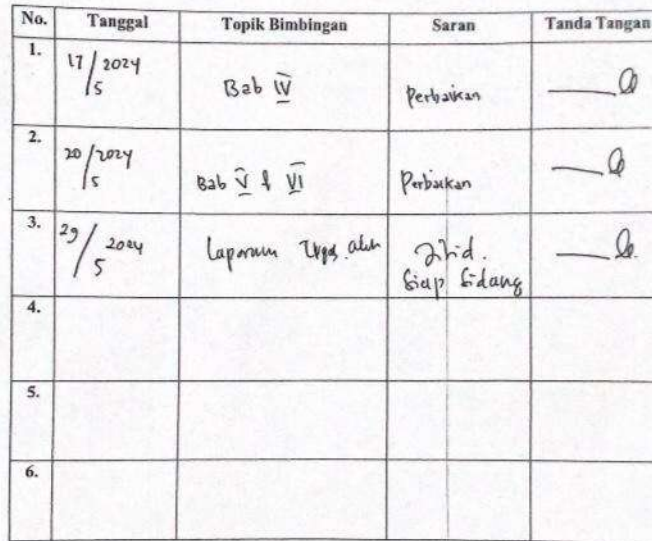 No. Tanggal Topik Bimbingan Saran Tanda Tangan
1. 17/5 2024 Bab IV Perbaikan
2. 20/5 2024 Bab V & VI Perbaikan
3. 29/5 2024 Laporan
Siap Sidang
4.
5.
6.